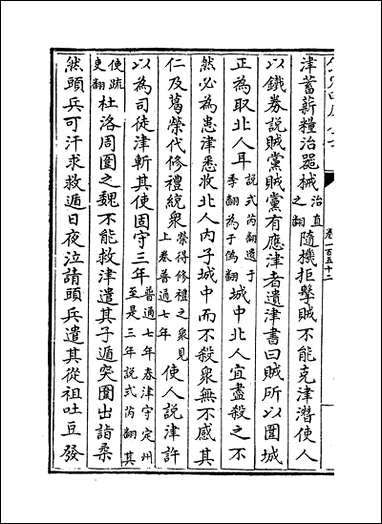 卷一百五十二
津蓄薪糧治器械治直之翻隨機拒擊賊不能克津潛使人
以鐵券説賊黨賊黨有應津者遺津書曰賊所以圍城
正為取北人耳説式芮翻遺于季翻為于偽翻城中北人宜盡殺之不
然必為患津悉收北人内子城中而不殺衆無不感其
仁及葛榮代修禮統衆榮得修禮之衆見上卷普通七年使人説津許
以為司徒津斬其使固守三年普通七年春津守定州至是三年説式芮翻其
使疏吏翻杜洛周圍之魏不能救津遣其子遁突圍出詣柔
然頭兵可汗求救遁日夜泣請頭兵遣其從祖吐豆發